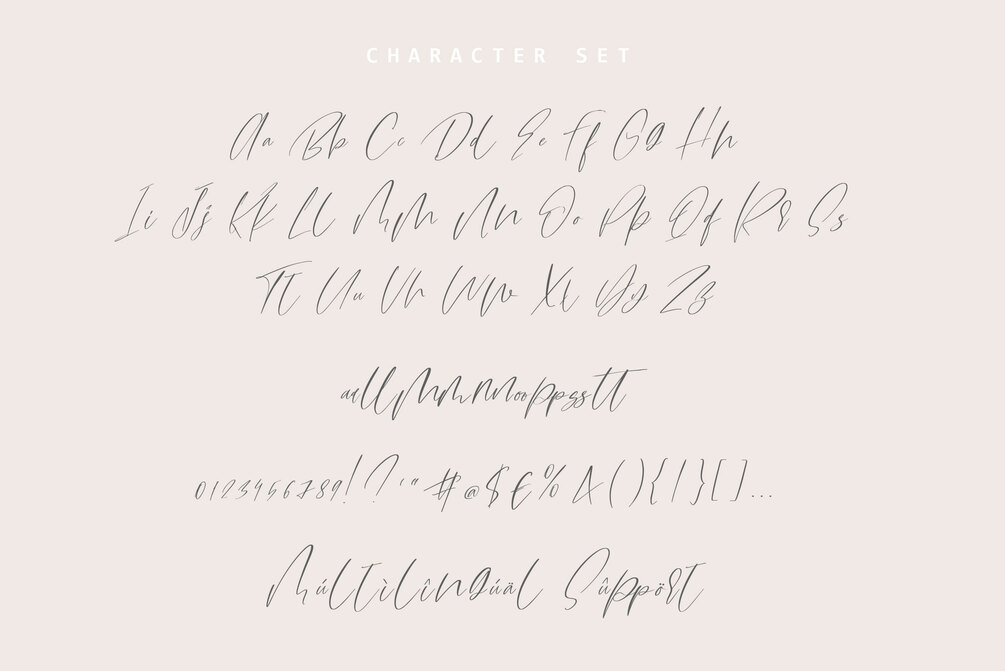 CHARACTER SET
Aa Bb Cc Dd Ee Ff Gg Hh
Ii Jj Kk Ll Mm Nn Oo Pp Qq Rr Ss
Tt Uu Vv Ww Xx Yy Zz
aallmmnnooppsstt
0123456789!?'"#@$€%&(){/}[]...
Múltìlîngúäl Sûppört